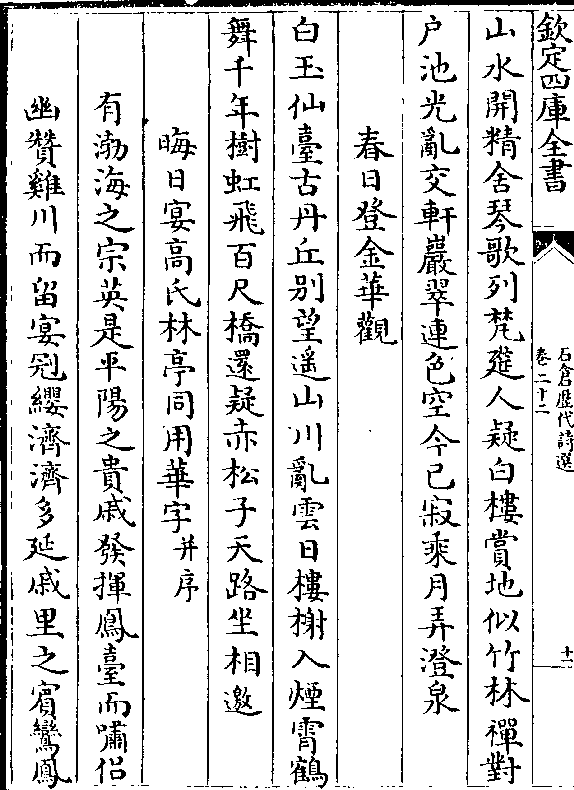 欽定四庫全書
石倉歷代詩選
卷二十二
十二
山水開精舍琴歌列梵筵人疑白樓賞地似竹林禪對
户池光亂交軒巖翠連色空今已寂乘月弄澄泉
春日登金華觀
白玉仙臺古丹丘别望遥山川亂雲日樓榭入煙霄鶴
舞千年樹虹飛百尺橋還疑赤松子天路坐相邀
晦日宴高氏林亭同用華字并序
有渤海之宗英是平陽之貴戚發揮鳳臺而嘯侣
幽贊雞川而留宴冠纓濟濟多延戚里之賓鸞鳳